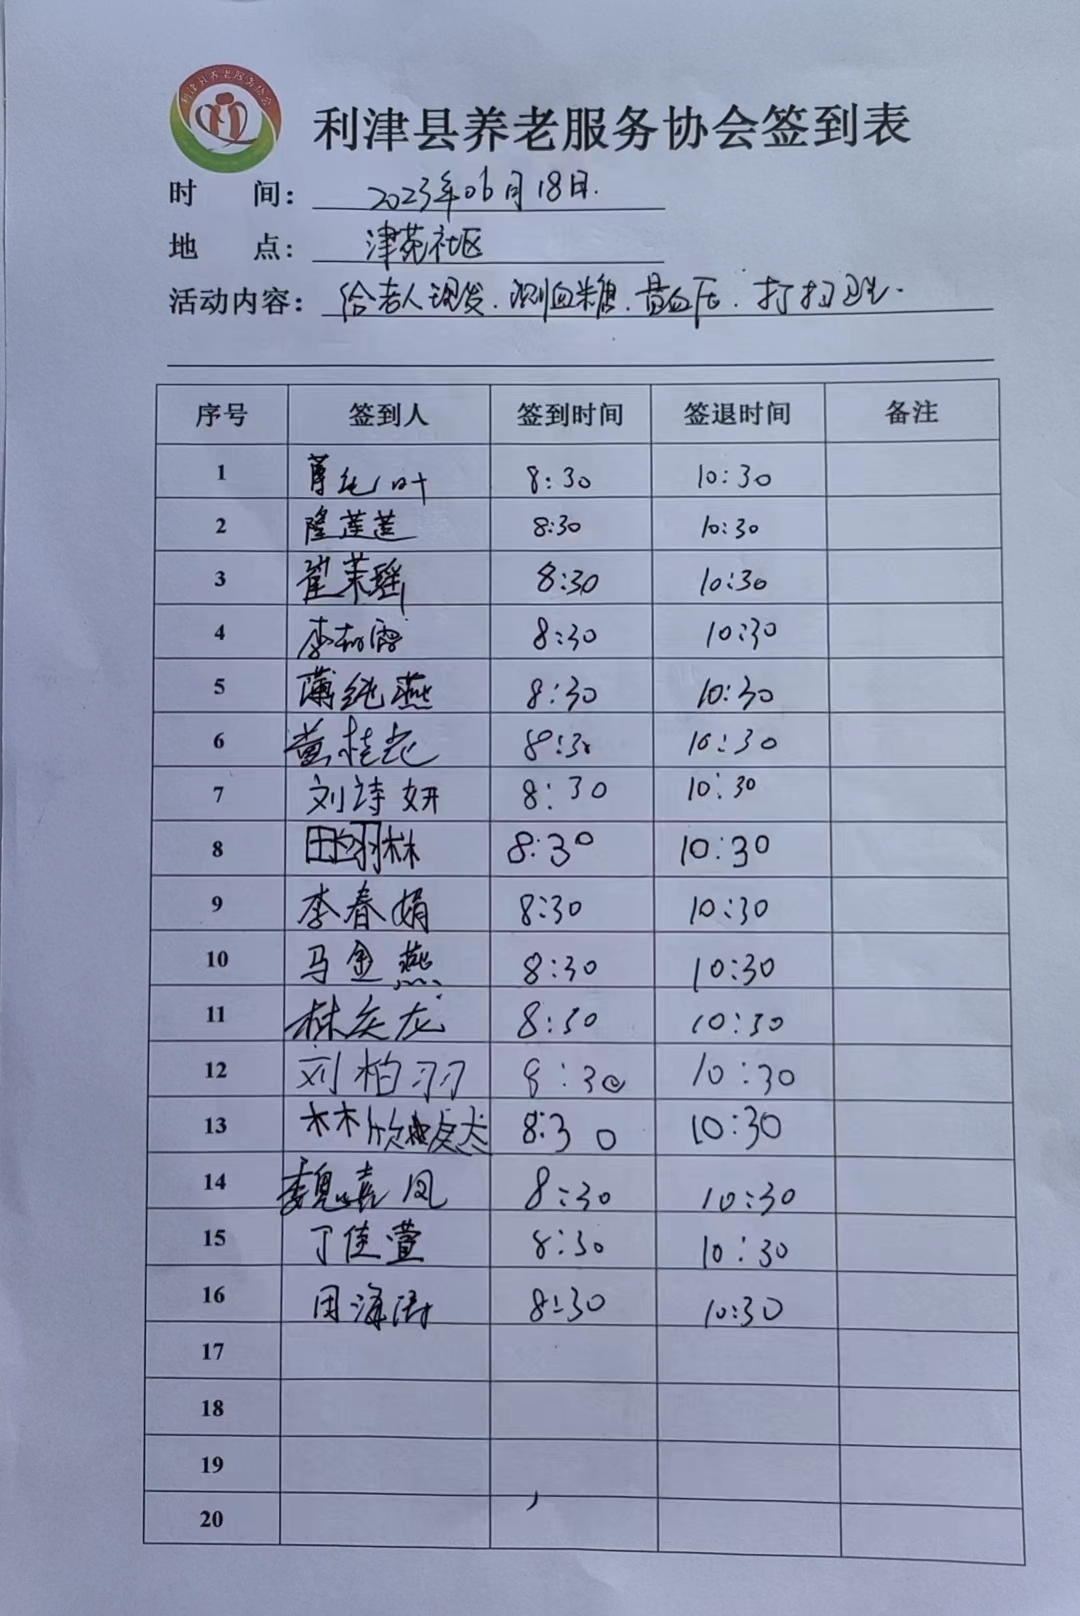 利津县养老服务协会
利津县养老服务协会签到表
时 间: 2023年06月18日.
地 点: 津苑社区
活动内容: 给老人理发.测血糖.量血压.打扫卫生.
序号 签到人 签到时间 签退时间 备注
1 8:30 10:30
2 隆莲莲 8:30 10:30
3 崔茉瑶 8:30 10:30
4 李 8:30 10:30
5 薄纯燕 8:30 10:30
6 黄桂花 8:30 10:30
7 刘诗妍 8:30 10:30
8 田羽林 8:30 10:30
9 李春娟 8:30 10:30
10 马金燕 8:30 10:30
11 林龙 8:30 10:30
12 刘柏羽 8:30 10:30
13 林欣 8:30 10:30
14 魏嘉凤 8:30 10:30
15 丁佳萱 8:30 10:30
16 周海涛 8:30 10:30
17
18
19
20